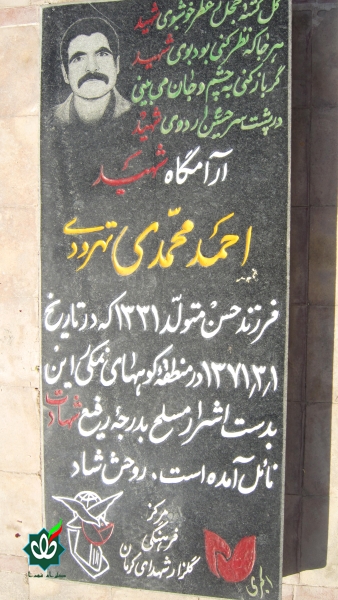 گل گشته خجل ز عطر خوشبوی شهید
هر جا که نظر کنی بود بوی شهید
گر باز کنی به چشم و جان می بینی
در پشت سر خمینی اردوی شهید
آرامگاه شهید
احمد محمدی تهرودی
فرزند حسن متولد ۱۳۳۱ که در تاریخ
۱۳۷۱٫۳٫۱ در منطقه کوههای نمکی این
بدست اشرار مسلح بدرجه رفیع شهادت
نائل آمده است، روحش شاد
مرکز
فرهنگی
گلزار شهدای کرمان